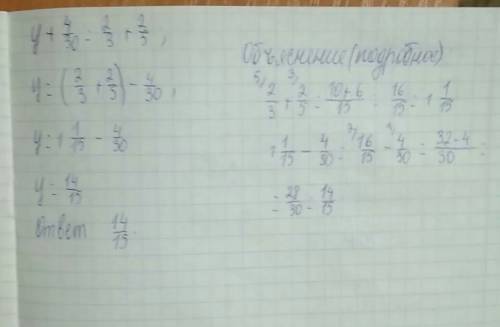 y + 4/30 = 2/3 + 2/5,
y = (2/3 + 2/5) - 4/30,
y = 1 1/15 - 4/30
y = 14/15
Ответ 14/15.
Объяснение (подробное)
5) 2/3 + 3) 2/5 = 10+6/15 = 16/15 = 1 1/15
1 1/15 - 4/30 = 2) 16/15 - 1) 4/30 = 32-4/30 =
= 28/30 = 14/15